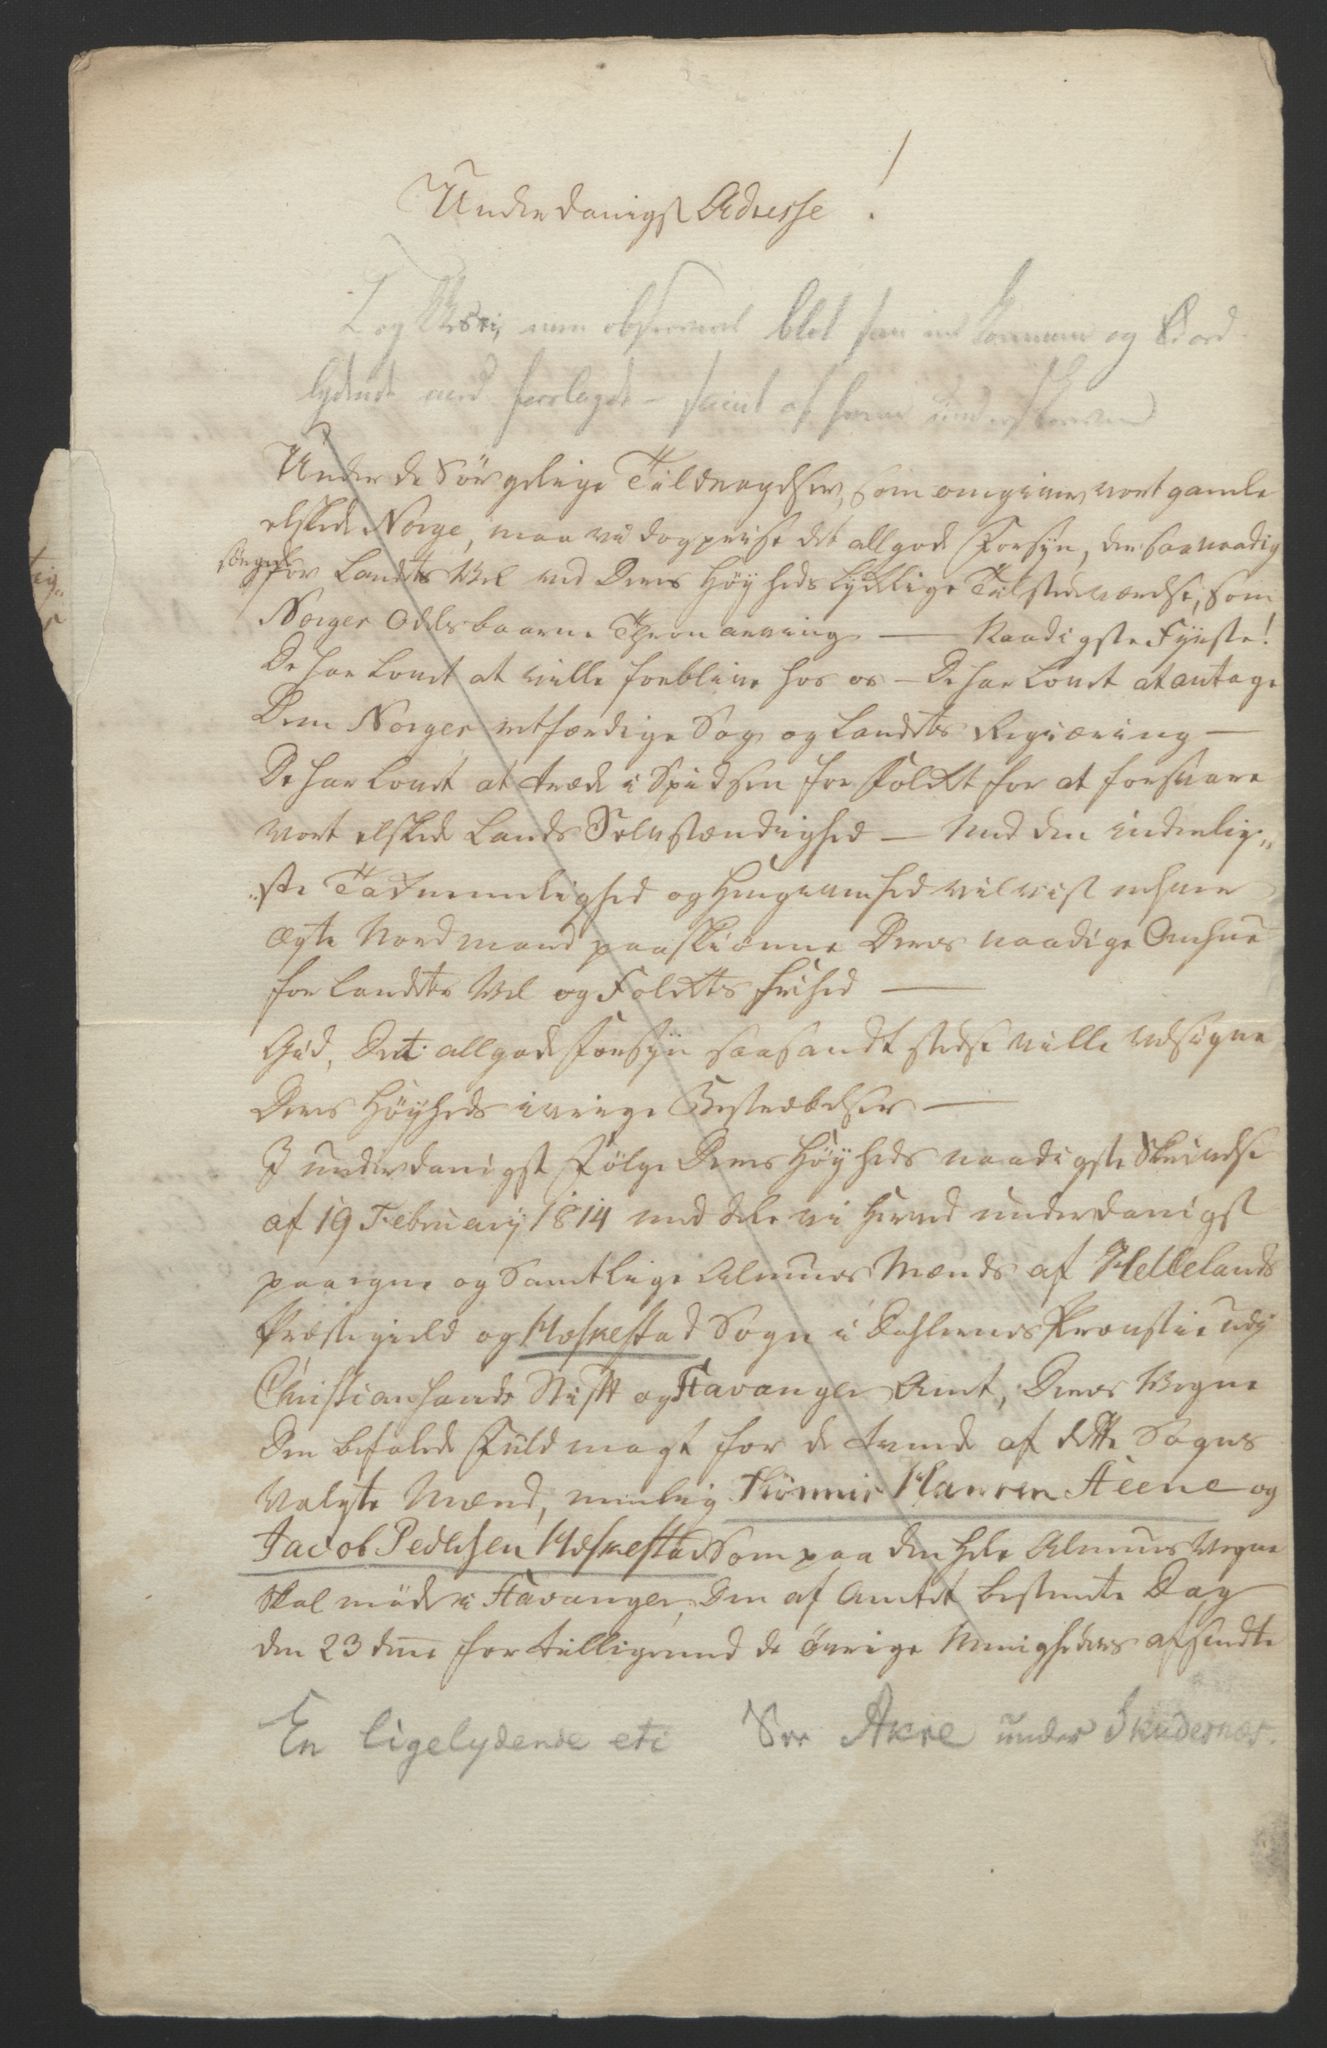 Underdanigst Adresse!
blot
lydende med forslaget – samt af
Under de Sørgelige Tildragelser, som omgiver vort gamle
elskede Norge, maa vi dog prise det allgode Forsÿn, der saa naadig
sørgede for Landets Vel ved Deres Høÿheds lykkelige Tilstedeværelse, som
Norges Odelsbaarne Thronarving — Naadigste Fÿrste!
De har lovet at ville forblive hos os – De har lovet at antage
Dem Norges retfærdige Sag og Landets Regiæring —
De har lovet at træde i Spidsen for Folket for at forsvare
vort elskede Lands Selvstændighed — Med den inderlig„
„ste Taknemmelighed og Hengivenhed vil vist enhver
ægte Nordmand paaskiønne Deres naadige Omhue
for Landets Vel og Folkets frihed —
Gud, Det allgode Forsÿn saasandt stedse ville velsigne
Deres Høÿheds ivrige Bestræbelser —
I underdanigst Følge Deres Høÿheds naadigste Skrivelse
af 19 Februarÿ 1814 meddele vi herved underdanigst
paa egne og Samtlige Almues Mænds af Hellelands
Præstegield og Heskestad Sogn i Dahlernes Provstie udj
Christiansands Stift og Stavanger Amt, Deres Vegne
Den befalede Fuldmagt for de tvende af dette Sogns
Valgte Mænd, nemlig Thønnis Hansen Steene og
Jacob Pedersen Heskestad Som paa den hele Almues Vegne
skal møde i Stavanger, Den af Amtet bestemte Dag
den 23 dms for tilligemed de øvrige Menigheders afsendte
En ligelydende etc See Akre under Skudesnæs.